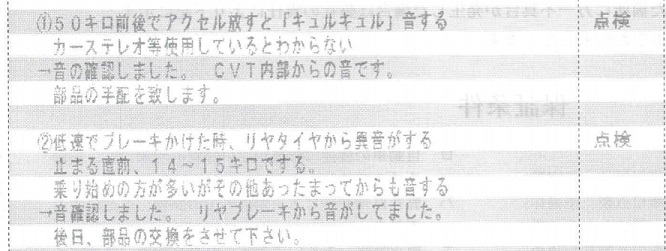 ①50キロ前後でアクセル放すと「キュルキュル」音する 点検
カーステレオ等使用しているとわからない
→音の確認しました。 CVT内部からの音です。
部品の手配を致します。
②低速でブレーキかけた時、リヤタイヤから異音がする 点検
止まる直前、14～15キロでする。
乗り始めの方が多いがその他あったまってからも音する
→音確認しました。 リヤブレーキから音がしてました。
後日、部品の交換をさせて下さい。